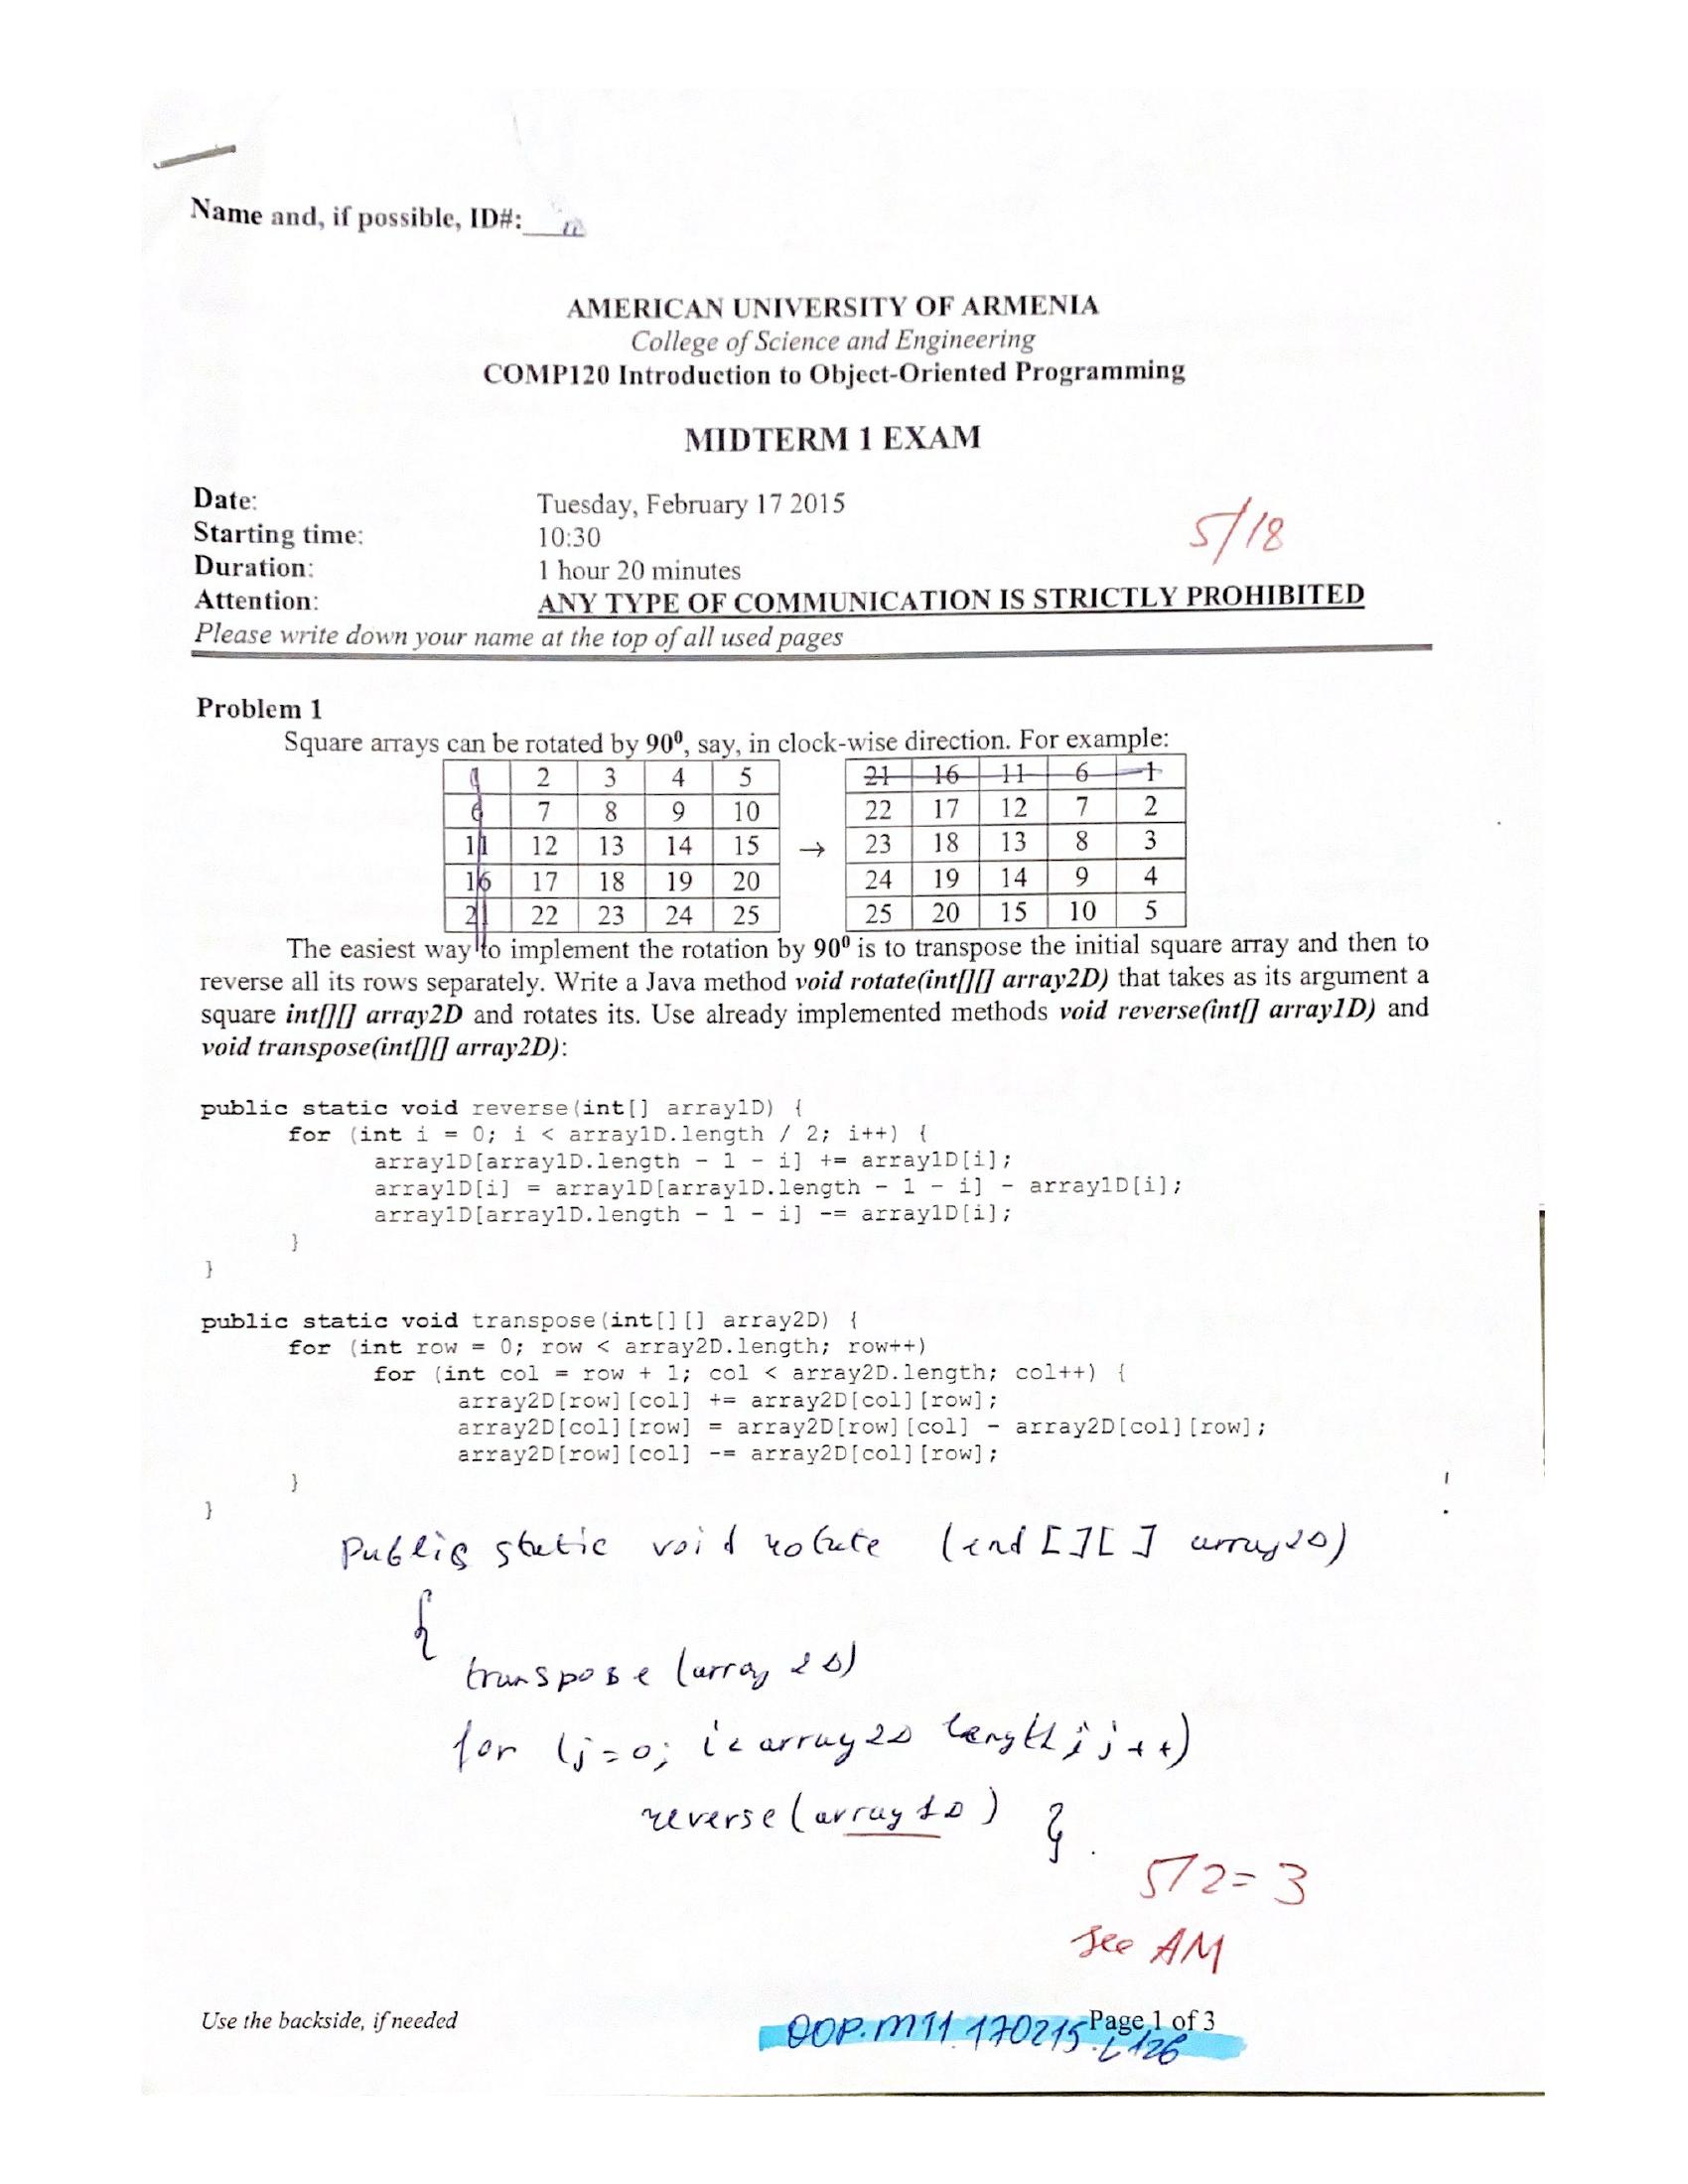 Name and, if possible, ID#:
AMERICAN UNIVERSITY OF ARMENIA
College of Science and Engineering
COMP120 Introduction to Object-Oriented Programming
MIDTERM 1 EXAM
Date: Tuesday, February 17 2015
5/18
Starting time: 10:30
Duration: 1 hour 20 minutes
Attention: ANY TYPE OF COMMUNICATION IS STRICTLY PROHIBITED
Please write down your name at the top of all used pages
Problem 1
Square arrays can be rotated by 90⁰, say, in clock-wise direction. For example:
1 2 3 4 5 21 16 11 6 1
6 7 8 9 10 22 17 12 7 2
11 12 13 14 15 → 23 18 13 8 3
16 17 18 19 20 24 19 14 9 4
21 22 23 24 25 25 20 15 10 5
The easiest way to implement the rotation by 90⁰ is to transpose the initial square array and then to
reverse all its rows separately. Write a Java method void rotate(int[][] array2D) that takes as its argument a
square int[][] array2D and rotates its. Use already implemented methods void reverse(int[] array1D) and
void transpose(int[][] array2D):
public static void reverse(int[] array1D) {
for (int i = 0; i < array1D.length / 2; i++) {
array1D[array1D.length - 1 - i] += array1D[i];
array1D[i] = array1D[array1D.length - 1 - i] - array1D[i];
array1D[array1D.length - 1 - i] -= array1D[i];
}
}
public static void transpose(int[][] array2D) {
for (int row = 0; row < array2D.length; row++)
for (int col = row + 1; col < array2D.length; col++) {
array2D[row][col] += array2D[col][row];
array2D[col][row] = array2D[row][col] - array2D[col][row];
array2D[row][col] -= array2D[col][row];
}
}
public static void rotate (ind [][] array2D)
{
transpose (array 2D)
for (j=0; i< array2D length; j++)
reverse (array 1D) }
5/2= 3
see AM
Use the backside, if needed
Page 1 of 3
OOP.MT1.170215.L126